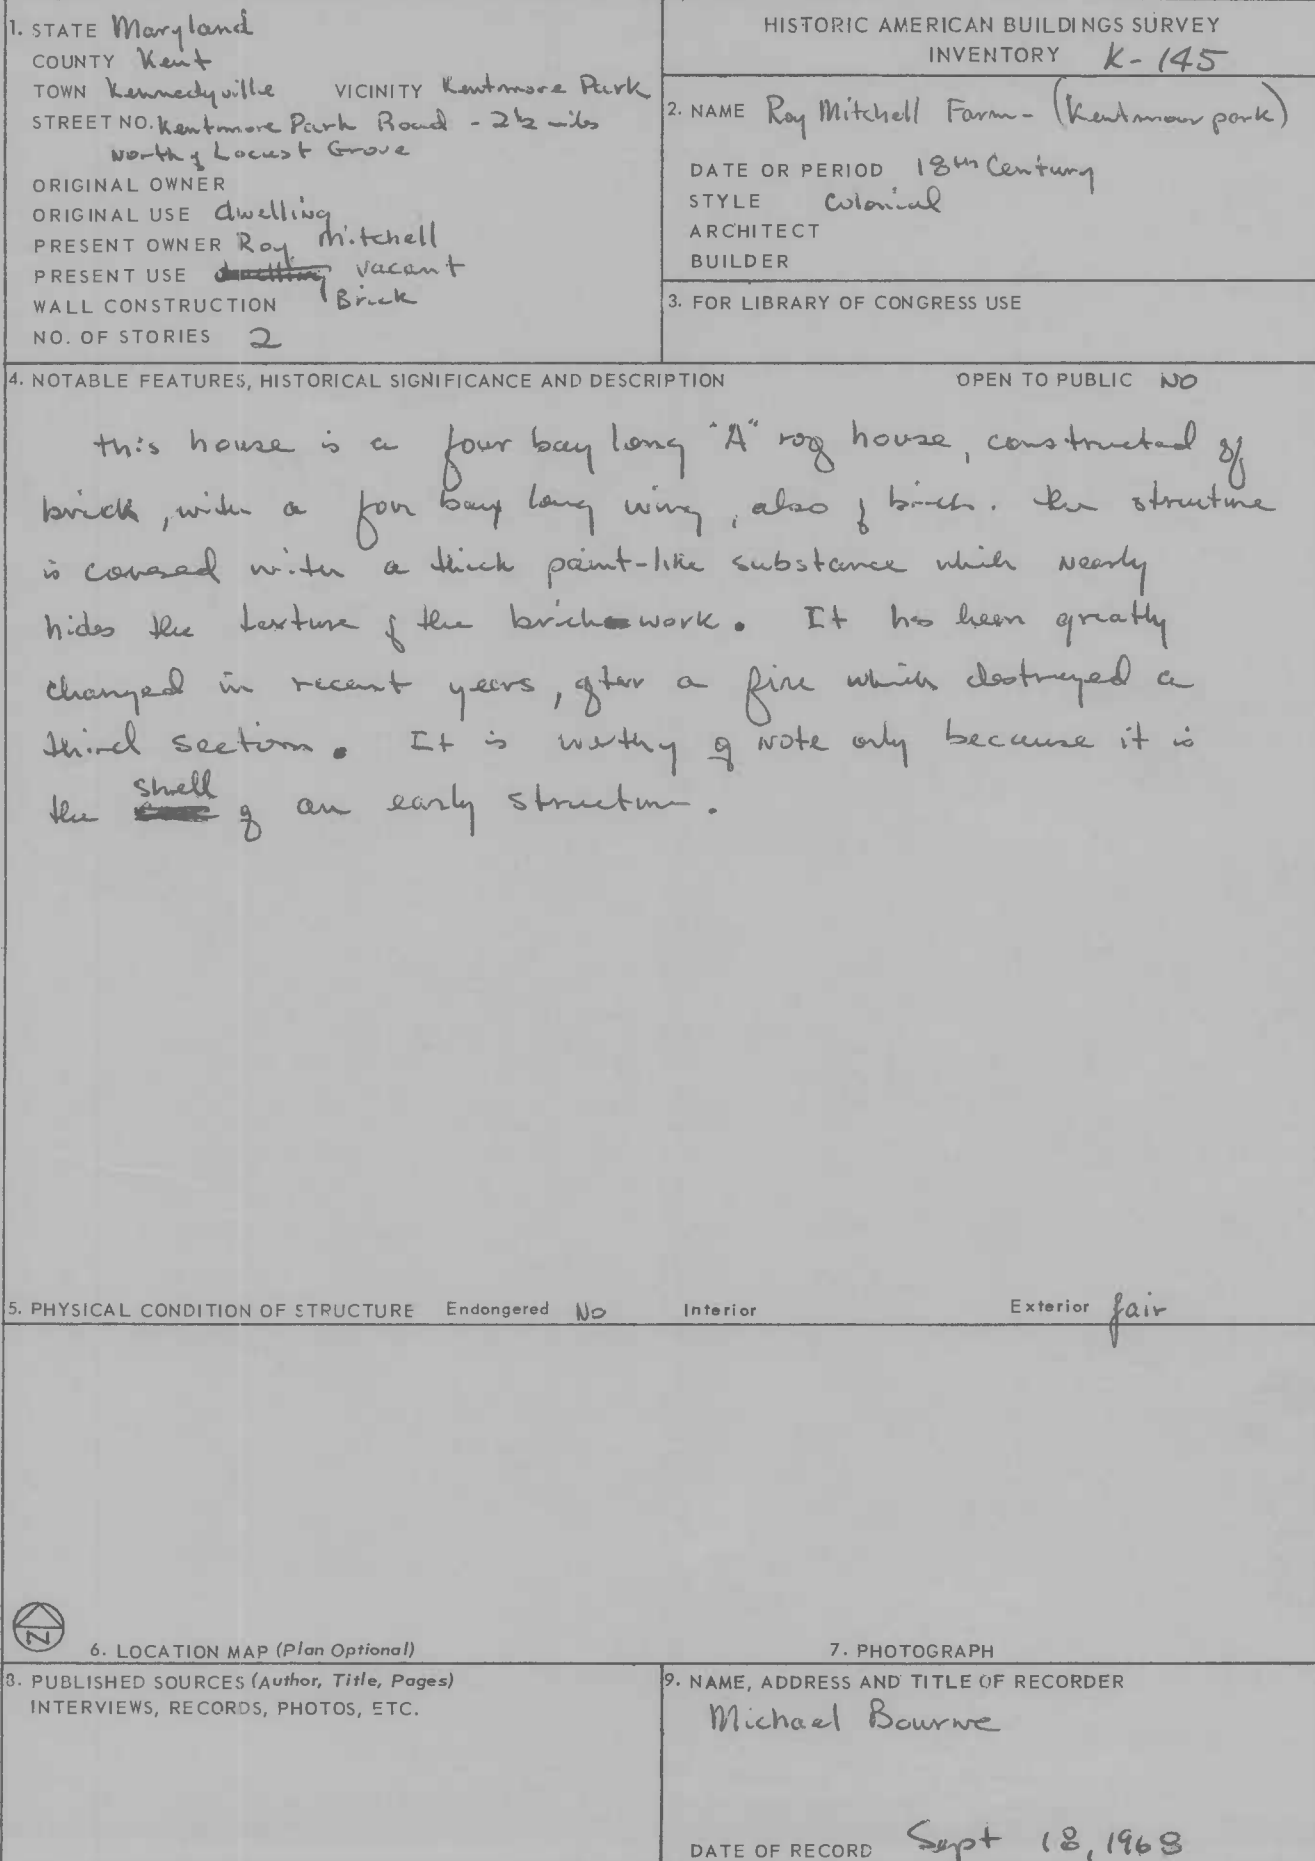 1. STATE Maryland
COUNTY Kent
TOWN Kennedyville VICINITY Kentmore Park
STREET NO. Kentmore Park Road - 2½ miles
North of Locust Grove
ORIGINAL OWNER
ORIGINAL USE dwelling
PRESENT OWNER Roy Mitchell
PRESENT USE dwelling vacant
WALL CONSTRUCTION Brick
NO. OF STORIES 2
HISTORIC AMERICAN BUILDINGS SURVEY
INVENTORY K-145
2. NAME Roy Mitchell Farm - (Kentmour park)
DATE OR PERIOD 18th Century
STYLE Colonial
ARCHITECT
BUILDER
3. FOR LIBRARY OF CONGRESS USE
4. NOTABLE FEATURES, HISTORICAL SIGNIFICANCE AND DESCRIPTION OPEN TO PUBLIC NO
this house is a four bay long "A" roof house, constructed of
brick, with a four bay long wing, also of brick. The structure
is covered with a thick paint-like substance which nearly
hides the texture of the brick work. It has been greatly
changed in recent years, after a fire which destroyed a
third section. It is worthy of note only because it is
the shell of an early structure.
5. PHYSICAL CONDITION OF STRUCTURE Endangered No Interior Exterior fair
N
6. LOCATION MAP (Plan Optional)
7. PHOTOGRAPH
8. PUBLISHED SOURCES (Author, Title, Pages)
INTERVIEWS, RECORDS, PHOTOS, ETC.
9. NAME, ADDRESS AND TITLE OF RECORDER
Michael Bourne
DATE OF RECORD Sept 18, 1968